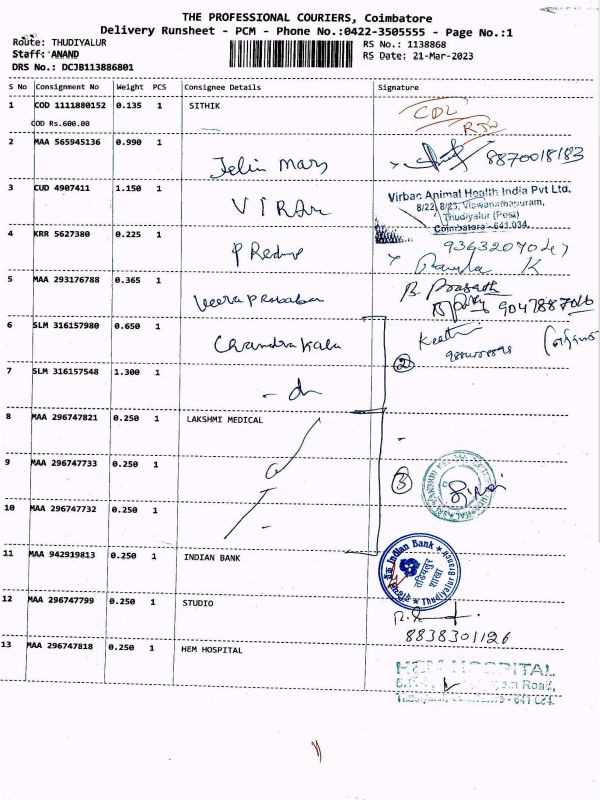 THE PROFESSIONAL COURIERS, Coimbatore
Delivery Runsheet - PCM - Phone No.:0422-3505555 - Page No.:1
Route: THUDIYALUR
RS No.: 1138868
Staff: ANAND
RS Date: 21-Mar-2023
DRS No.: DCJB113886801
S No Consignment No Weight PCS Consignee Details Signature
1 COD 1111880152 0.135 1 SITHIK
COD Rs.600.00
2 MAA 565945136 0.990 1
Jelin Mary 8870018183
3 CUD 4907411 1.150 1
Virbac Animal Health India Pvt Ltd,
8/22, 8/23, Viswanathapuram,
Thudiyalur (Post)
Coimbatore - 641 034.
4 KRR 5627380 0.225 1
5 MAA 293176788 0.365 1
B. Prasath
6 SLM 316157980 0.650 1
Chandra Kala
②
7 SLM 316157548 1.300 1
- do
8 MAA 296747821 0.250 1 LAKSHMI MEDICAL
9 MAA 296747733 0.250 1
③
10 MAA 296747732 0.250 1
11 MAA 942919813 0.250 1 INDIAN BANK
Indian Bank
Thudiyalur Branch
12 MAA 296747799 0.250 1 STUDIO
8838301126
13 MAA 296747818 0.250 1 HEM HOSPITAL
HEM HOSPITAL
Road,